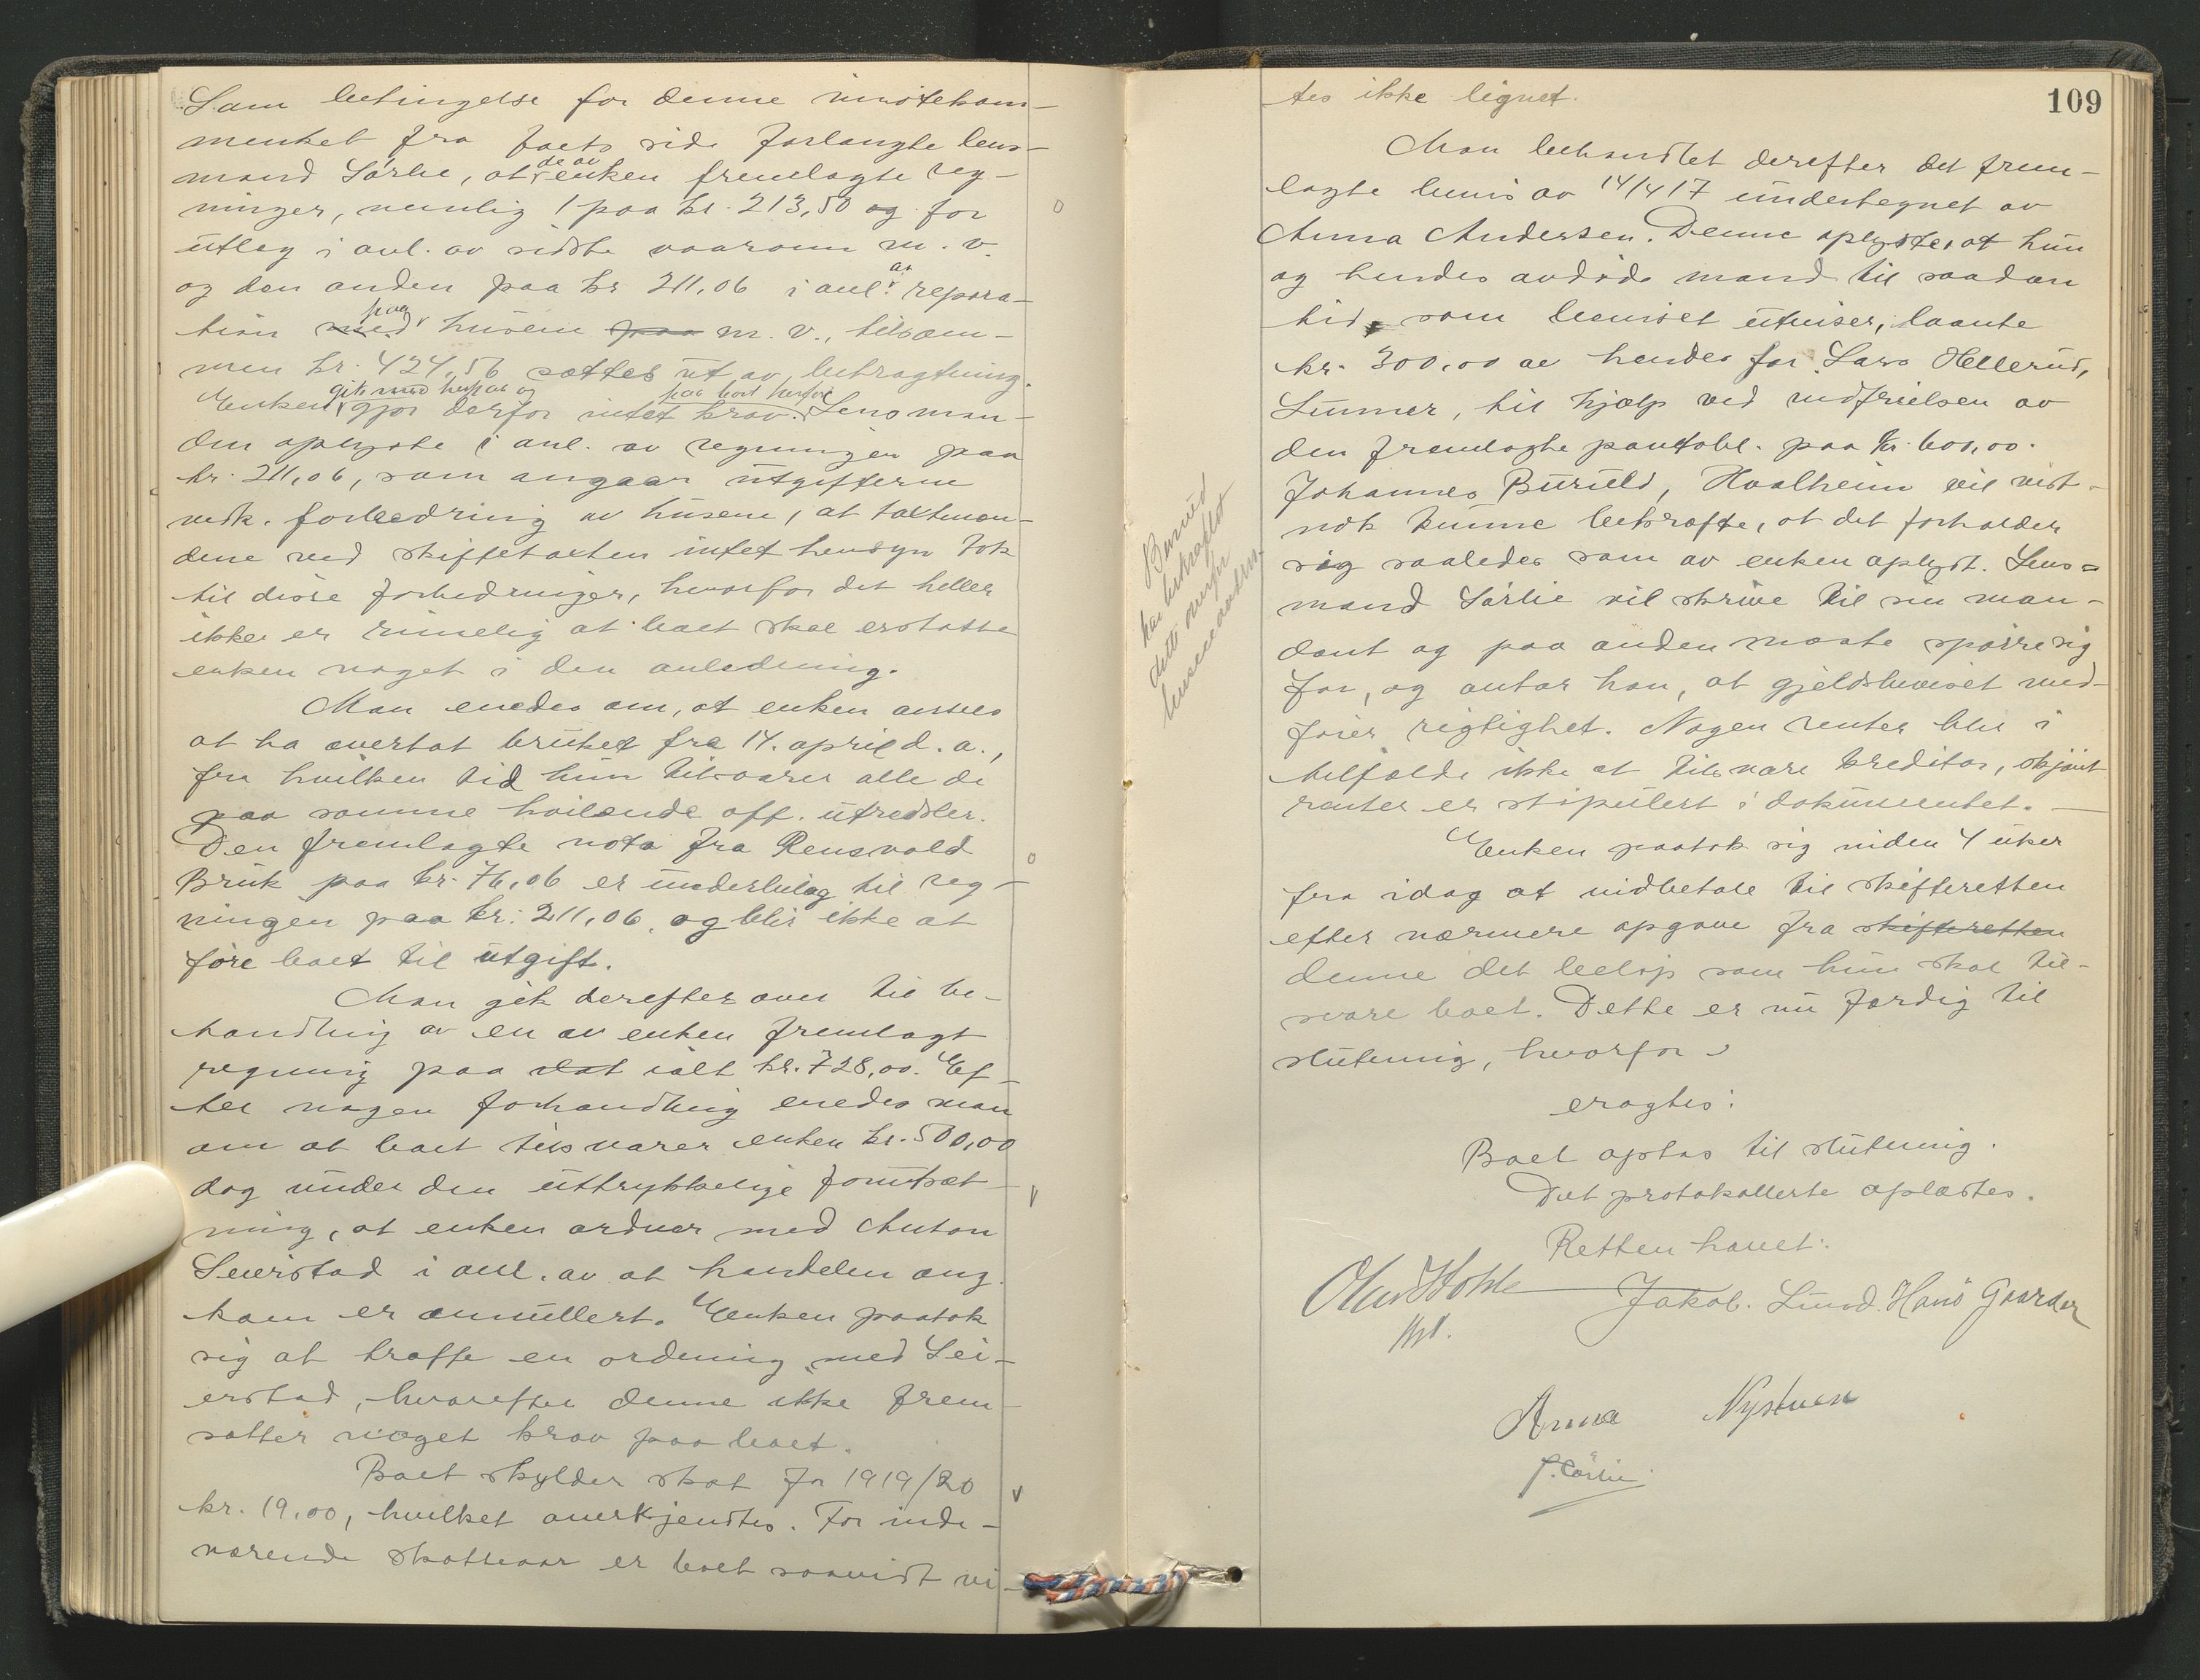 Som betingelse for denne imøtekom-
menhet fra boets side forlangte lens-
mand Sørlie, at de av enken fremlagte reg-
ninger, nemlig 1 paa kr. 213,50 og for
utlæg i anl. av sidste vaaronn m. v.
og den anden paa kr 211,06 i anl. av repara-
tion paa husene m. v., tilsam-
men kr. 424,56 sættes ut av betragtning.
Enken gik med herpaa og gjør derfor intet krav paa boet herfor. Lensman-
den oplyste i anl. av regningen paa
kr. 211,06, som angaar utgifterne
vedk. forbedring av husene, at takstmæn-
dene ved skiftetaksten intet hensyn tok
til disse forbedringer, hvorfor det heller
ikke er rimelig at boet skal erstatte
enken noget i den anledning.
Man enedes om, at enken ansees
at ha overtat bruket fra 14. april d. a.,
fra hvilken tid hun tilsvarer alle de
paa samme hvilende off. utredsler.
Den fremlagte nota fra Rensvold
Bruk paa kr. 76,06 er underbilag til reg-
ningen paa kr. 211,06, og blir ikke at
føre boet til utgift.
Man gik derefter over til be-
handling av en av enken fremlagt
regning paa ialt kr. 728,00. Ef-
ter nogen forhandling enedes man
om at boet tilsvarer enken kr. 500,00
dog under den uttrykkelige forutsæt-
ning, at enken ordner med Anton
Seierstad i anl. av at handelen ang.
ham er annullert. Enken paatok
sig at træffe en ordning med Sei-
erstad, hvorefter denne ikke frem-
sætter noget krav paa boet.
Boet skylder skat for 1919/20
kr. 19,00, hvilket anerkjendtes. For inde-
værende skatteaar er boet saavidt vi-
109
tes ikke lignet.
Man behandlet derefter det frem-
lagte bevis av 14/4 17 undertegnet av
Anna Andersen. Denne oplyste, at hun
og hendes avdøde mand til saadan
tid, som beviset utviser, laante
kr. 300,00 av hendes far Lars Hellerud,
Lunner, til hjælp ved indfrielsen av
den fremlagte pantobl. paa kr. 600,00.
Johannes Buruld, Hvalheim vil vist-
nok kunne bekræfte, at det forholder
sig saaledes som av enken oplyst. Lens-
mand Sørlie vil skrive til sin man-
dant og paa anden maate spørre sig
for, og antar han, at gjeldsbeviset med-
fører rigtighet. Nogen renter blir i
tilfælde ikke at tilsvare kreditor, skjønt
renter er stipulert i dokumentet. —
Enken paatok sig inden 4 uker
fra idag at indbetale til skifteretten
efter nærmere opgave fra skifteretten
denne det beløp som hun skal til-
svare boet. Dette er nu færdig til
slutning, hvorfor
eragtes:
Boet optas til slutning.
Det protokollerte oplæstes.
Retten hævet.
Jakob. Lund. Hans Gaarder
Anna Nystuen
P. Sørlie
har bekræftet